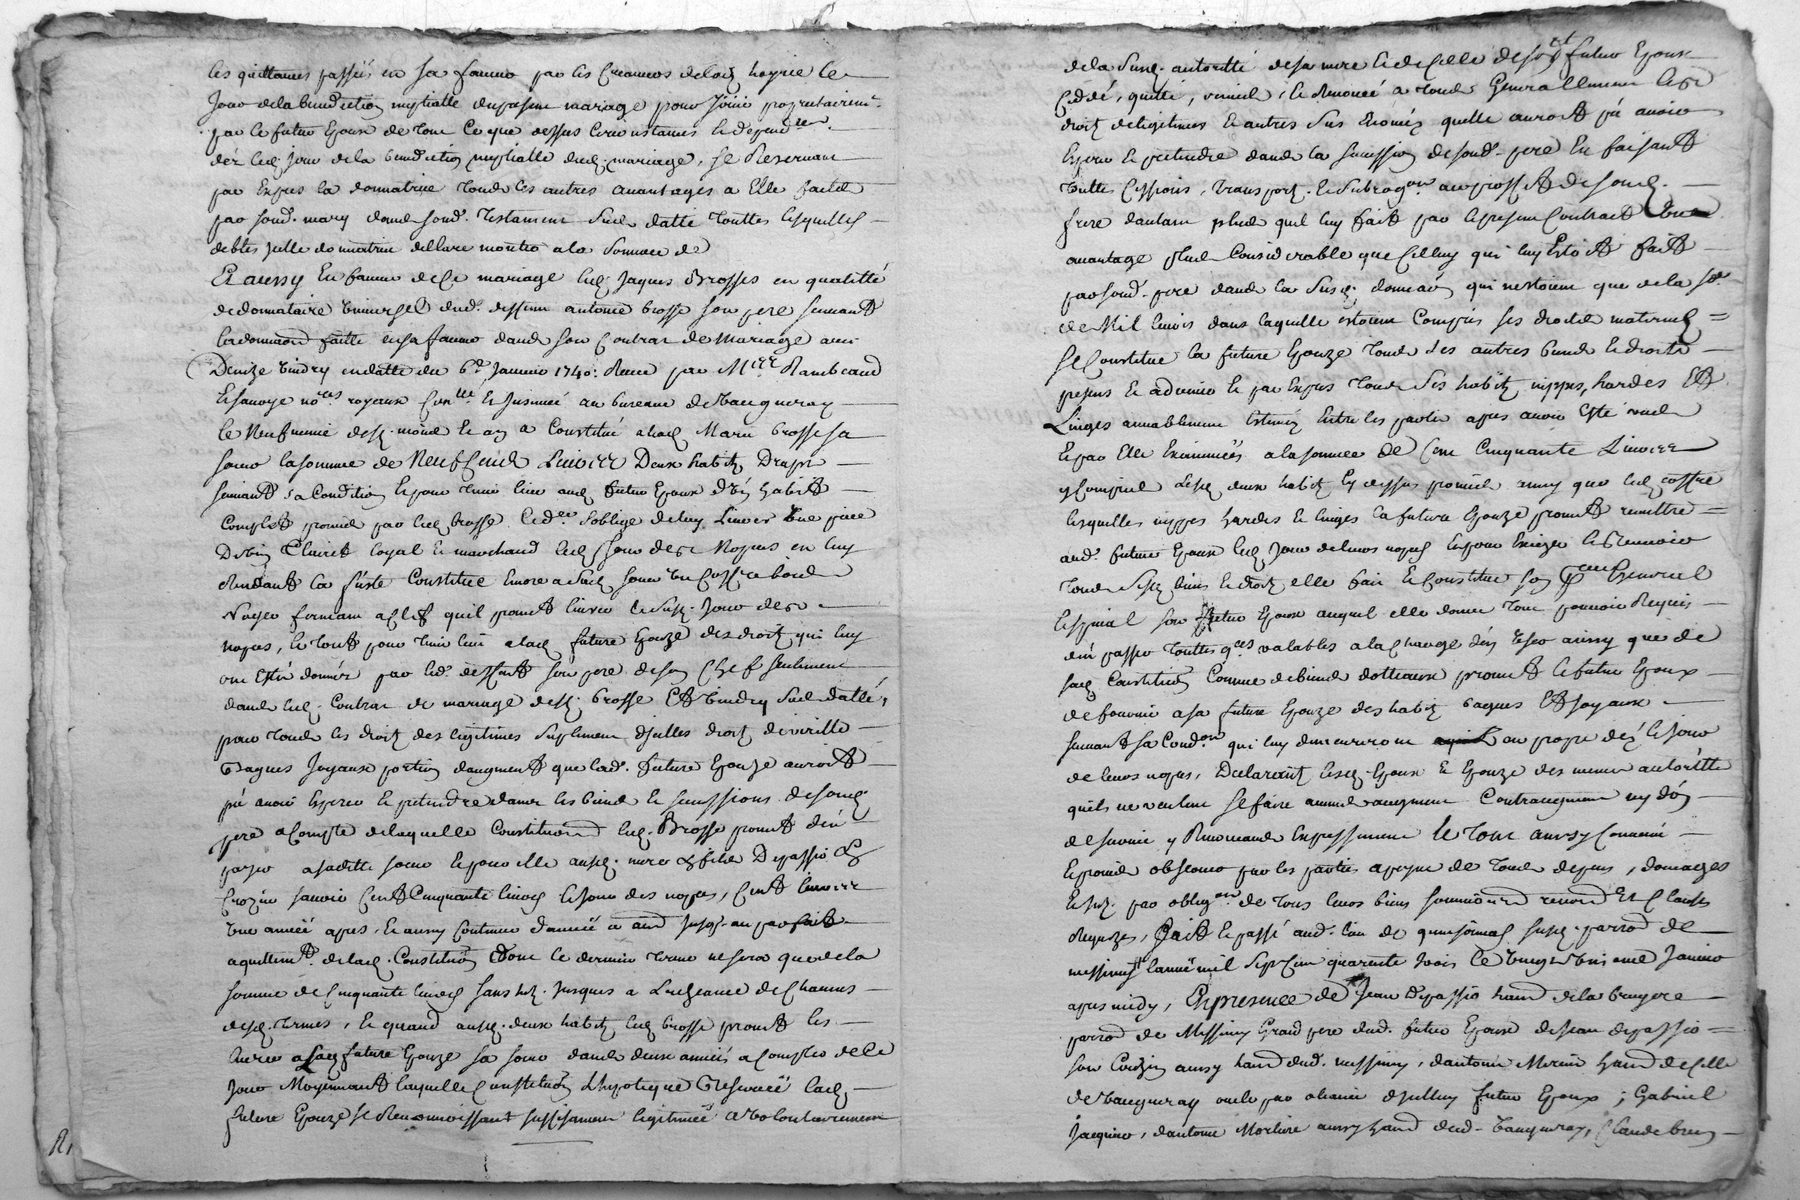 les quittances passés en sa faveur par les creanciers de lad hoyrie le
Jour de la benediction nuptialle du present mariage pour Jouir
par le futur Epoux de tout ce que dessus circonstances et dependces
dez led Jour de la benediction nuptialle dud mariage, se Reservant
par Expres la donnatrice tous les autres avantages a Elle faits
par sond. mary dans sond. Testament Sus datté touttes lesquelles
debtes declare monter a la somme de
Et aussy En faveur de ce mariage led Jaques Brosses en qualitté
de donnataire universel dud. deffunt antoine brosse son pere suivant
la donnation faitte en sa faveur dans son Contrat de Mariage avec
Denize Vindry en datte du 6e Janvier 1740: Receu par Mtres Rambeaud
et sauvoye notes royaux et Insinué au bureau de Vaugneray
le neufvieme desd. mois et an a Constitué a lad Marie brosse sa
soeur la somme de Neuf Cents Livres Deux habits Draps
suivant sa Condition et pour tenir lieu aud futur Epoux d'un habit
Complet promis par led brosse. led. s'oblige de luy Livrer une piece
De vin Clairet loyal et marchand led Jour des Nopces en luy
Rendant la futte Constitue encore a sad soeur un Coffre bois
Noyer fermant a Clef qu'il promet livrer le susd. Jour des
nopces, le tout pour tenir lieu a lad future Epouze des droits qui luy
ont Esté donnés par led. deffunt son pere de son Chef seulement
dans led. Contrat de mariage desd. brosse Et Vindry sus datté,
pour tous les droits des legitimes suplement d'icelles droits de virille
Bagues Joyaux portion d'augment que lad. future Epouze auroit
pû avoir Esperer et pretendre dans les biens et successions de son
pere a Compte de laquelle Constitution led. Brosse promet d'en
payer a saditte soeur et pour elle ausd. mere & fils Depassio &
Crozier sçavoir Cent Cinquante livres le Jour des nopces, Cent livres
une année apres, Et ainsy Continuer d'année a année Jusq. au parfait
aquittemt. de lad. Constitution dont le dernier terme ne sera que de la
somme de Cinquante livres sans Int. Jusques a L'echeance de Chacun
desd. termes, Et quand ausd. deux habits led brosse promet les
livrer a lad future Epouze sa soeur dans deux années a Compter de Ce
Jour Moyennant laquelle Constitution L'hypoteque Reservée lad.
future Epouze se Reconnoissant suffisament legitimée a volontairement
de la Susd. autoritté de sa mere et de Celle de sond futur Epoux
Ceddé, quitté, remis, et Renoncé a tous Generallement les
droits de legitimes Et autres sus Enoncés quelle auroit pû avoir
Esperer et pretendre dans la succession de sond. pere En faisant
touttes Cessions, transports. et subrogaon au proffit de sond.
frere d'autant plus quil luy fait par le present Contract Un
avantage plus Considerable que Celluy qui luy Estoit fait
par sond. pere dans la susd. donnaon qui n'estoient que de la so.
de Mil livres dans laquelle estoient Compris ses droits maternels
Se Constitue la future Epouze tous ses autres biens et droits
presens et advenir et par Expres tous ses habits nippes, hardes Et
Linges amiablement Estimés Entre les parties apres avoir Esté vus
Et par Elle Examinées a la somme de Cent Cinquante Livres
y Compris lesd. deux habits Cy dessus promis ainsy que led coffre
lesquelles nippes hardes et linges la future Epouze promet remettre
aud. futur Epoux led Jour de leurs nopces Et pour Exiger et Recevoir
tous sesd. biens et droits elle fait et Constitue son General
Et special son futur Epoux auquel elle donne tout pouvoir Requis
d'en passer touttes qces valables a la charge d'en ainsy que de
sad Constition Comme de biens dottaux promet le futur Epoux
de fournir a sa future Epouze des habits bagues Et Joyaux
suivant sa Condon. qui luy demeureront au propre dès le Jour
de leurs nopces, Declarant lesd. Epoux et Epouze des memes autoritté
quils ne veulent se faire aucuns augment Contraugment ny don
de survie y Renonceant Expressement le tout ainsy Convenu
Et promis observer par les parties a peyne de tous depens, domages
Et Int. par obligaon. de tous leurs biens soumissions renond Et Clauses
Requizes, Fait Et passé aud. lieu de susd. parroe de
messimy L'année mil sept Cent quarante trois le vingt unieme Janvier
apres midy, En presence de Jean Depassio habt de la bruyere
parroe de Messimy Grand pere dud. futur Epoux de Jean depassio
son Couzin aussy habt dud. messimy, d'antoine Morin habt de Celle
de Vaugneray oncle par alliance d'icelluy futur Epoux; Gabriel
Jacquier, d'antoine Morliere aussy habt dud. Vaugneray, Claude brun